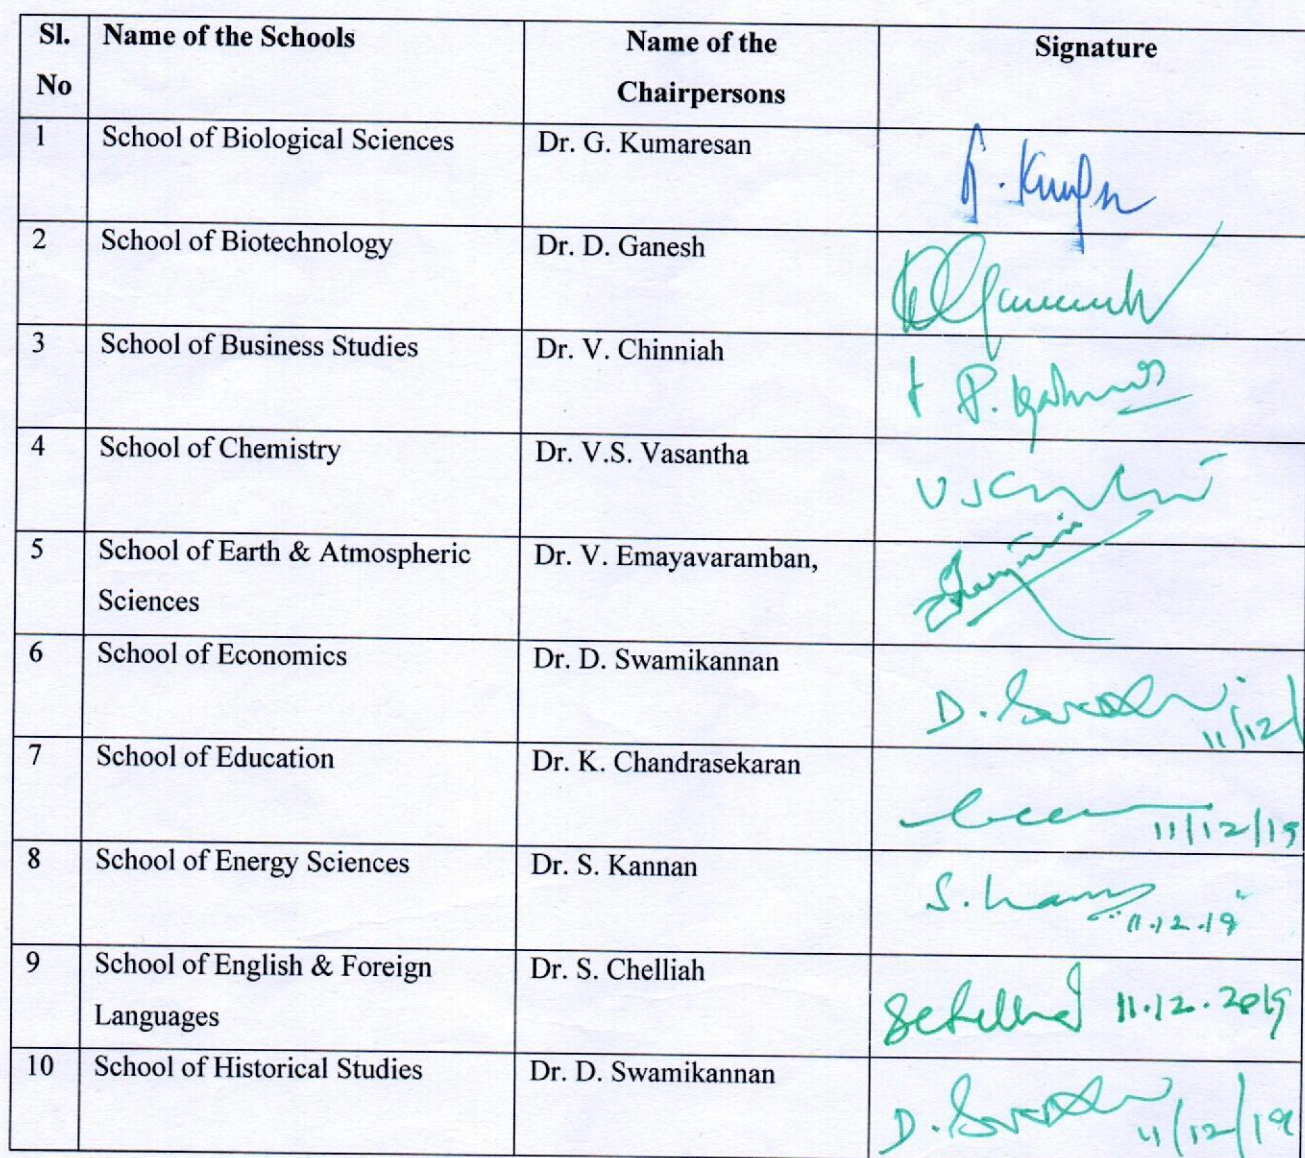 Sl. Name of the Schools Name of the Signature
No Chairpersons
1 School of Biological Sciences Dr. G. Kumaresan
2 School of Biotechnology Dr. D. Ganesh
3 School of Business Studies Dr. V. Chinniah
4 School of Chemistry Dr. V.S. Vasantha
5 School of Earth & Atmospheric Dr. V. Emayavaramban,
Sciences
6 School of Economics Dr. D. Swamikannan D.
11/12/
7 School of Education Dr. K. Chandrasekaran
11/12/19
8 School of Energy Sciences Dr. S. Kannan S.
11.12.19
9 School of English & Foreign Dr. S. Chelliah
Languages 11.12.2019
10 School of Historical Studies Dr. D. Swamikannan D.
11/12/19